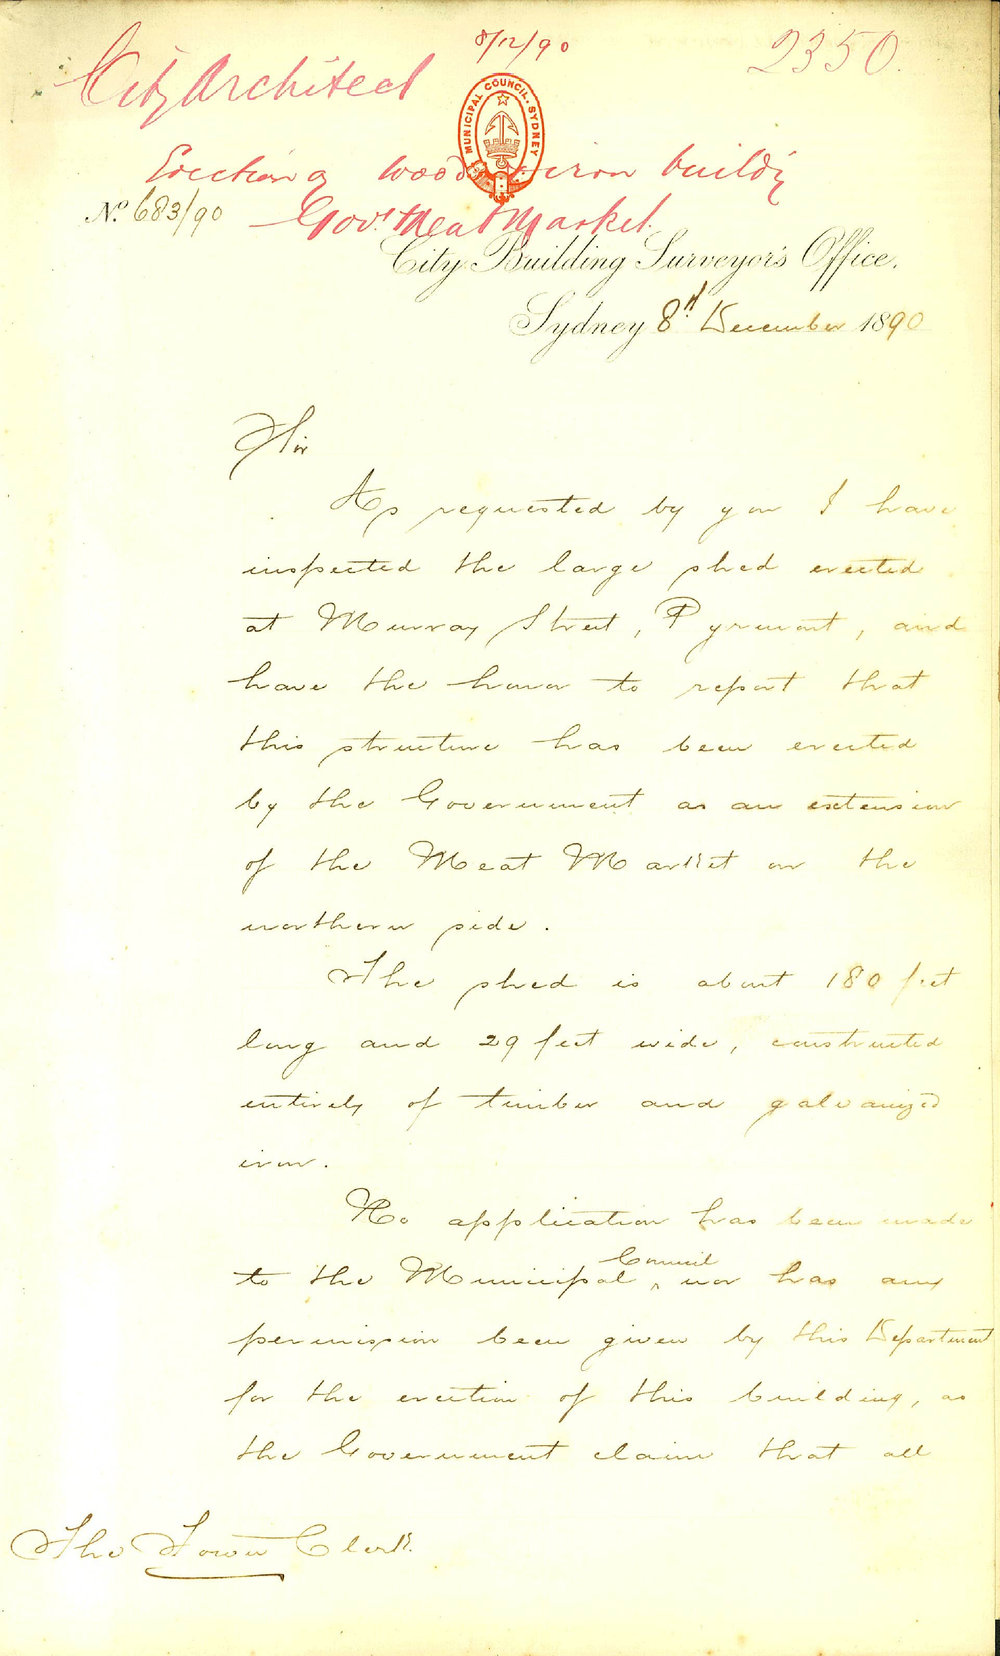 8/12/90
2350.
City Architect
MUNICIPAL COUNCIL. SYDNEY
Erection of wood & iron buildg
No. 683/90
Govt Meat Market.
City Building Surveyor's Office.
Sydney 8th December 1890
Sir
As requested by you I have
inspected the large shed erected
at Murray Street, Pyrmont, and
have the honor to report that
this structure has been erected
by the Government as an extension
of the Meat Market on the
northern side.
The shed is about 180 feet
long and 29 feet wide, constructed
entirely of timber and galvanized
iron.
No application has been made
to the Municipal Council nor has any
permission been given by this Department
for the erection of this building, as
the Government claim that all
The Town Clerk.